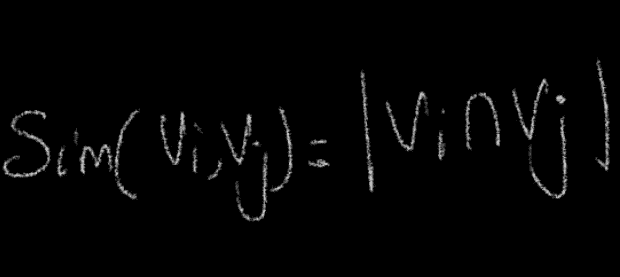 Sim(vi,vj)=|vi∩vj|